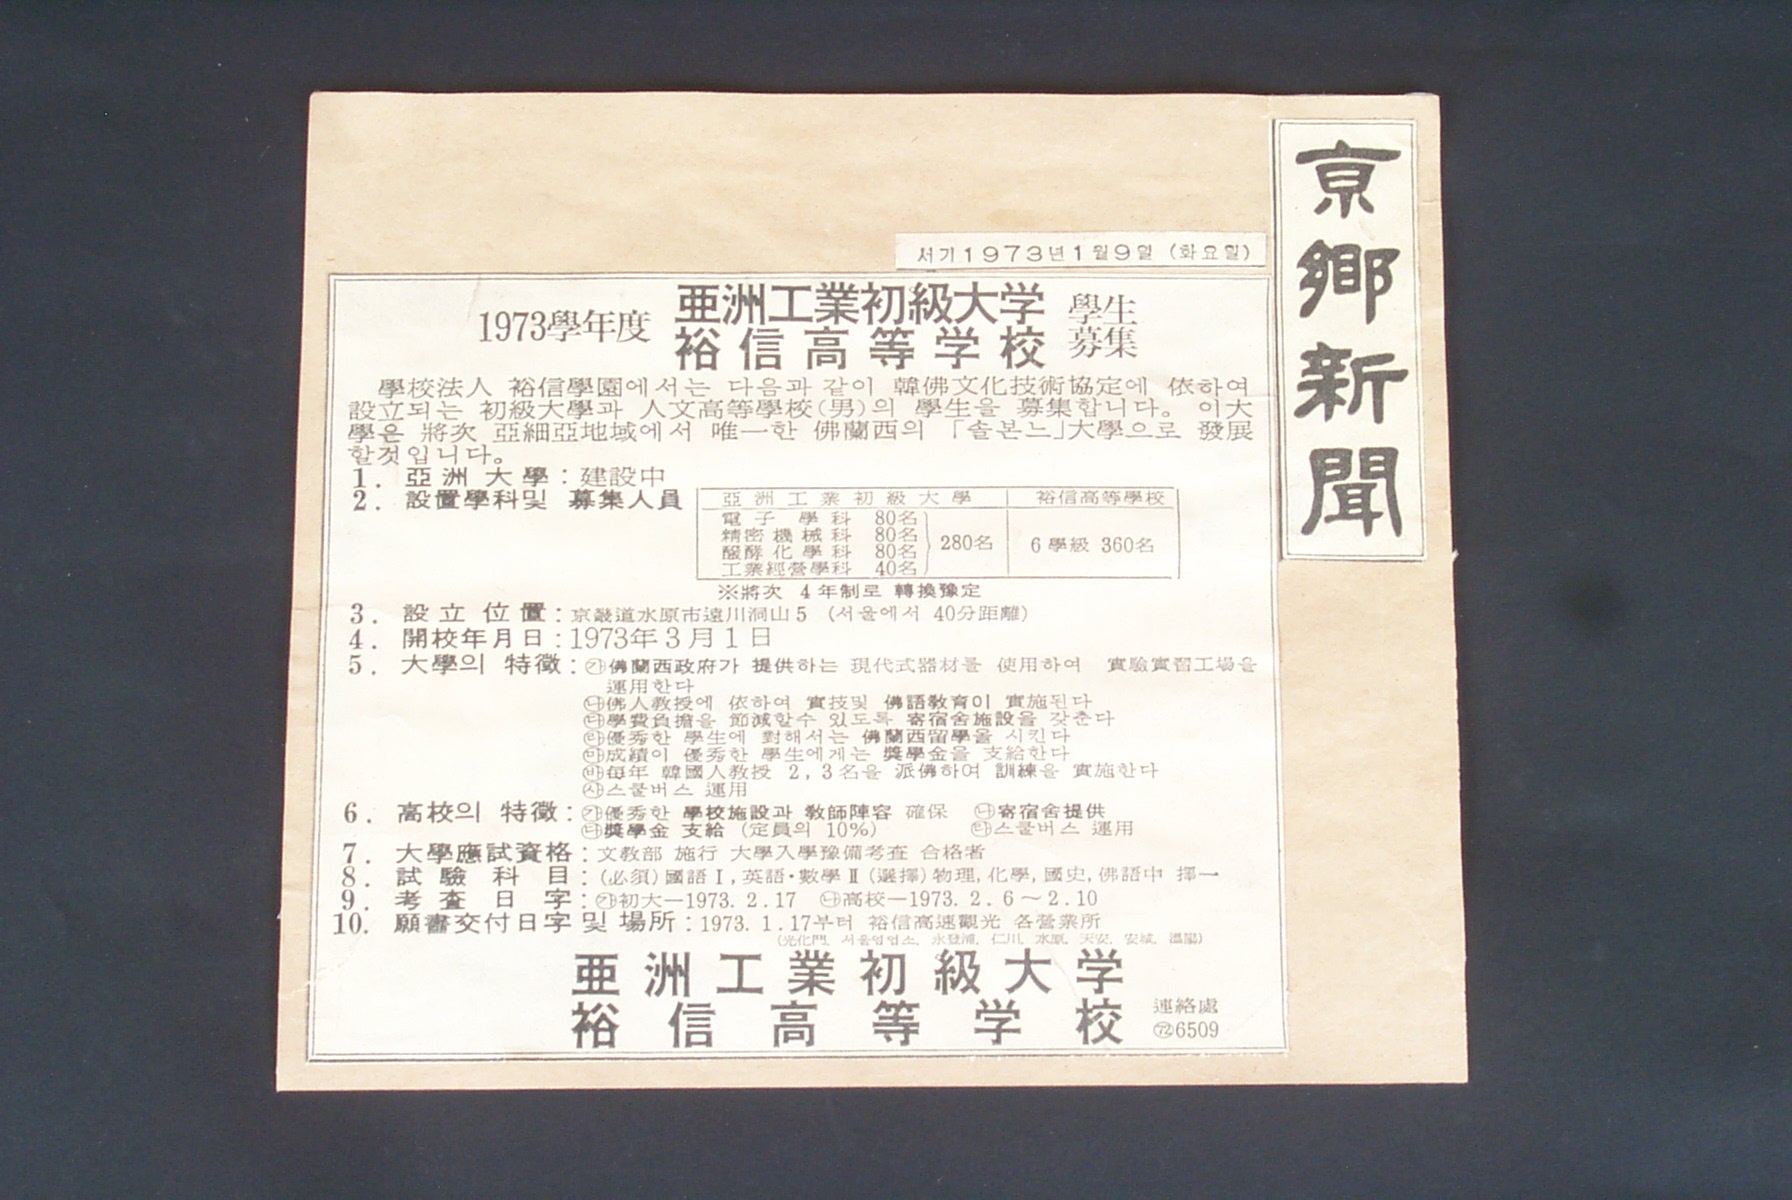 京鄉新聞
서기1973년1월9일 (화요일)
1973學年度 亜洲工業初級大学 學生
裕信高等学校 募集
學校法人 裕信學園에서는 다음과 같이 韓佛文化技術協定에 依하여
設立되는 初級大學과 人文高等學校(男)의 學生을 募集합니다。 이大
學은 將次 亞細亞地域에서 唯一한 佛蘭西의 「솔본느」大學으로 發展
할것입니다。
1. 亞洲大學 : 建設中
2. 設置學科및 募集人員
亞洲工業初級大學 裕信高等學校
電子學科 80名
精密機械科 80名
醱酵化學科 80名
工業經營學科 40名
280名
6學級 360名
※將次 4年制로 轉換豫定
3. 設立位置 : 京畿道水原市遠川洞山5 (서울에서 40分距離)
4. 開校年月日 : 1973年3月1日
5. 大學의 特徵 : ㉮佛蘭西政府가 提供하는 現代式器材를 使用하여 實驗實習工場을
運用한다
㉯佛人教授에 依하여 實技및 佛語教育이 實施된다
㉰學費負擔을 節減할수 있도록 寄宿舍施設을 갖춘다
㉱優秀한 學生에 對해서는 佛蘭西留學을 시킨다
㉲成績이 優秀한 學生에게는 獎學金을 支給한다
㉳每年 韓國人教授 2, 3名을 派佛하여 訓練을 實施한다
㉴스쿨버스 運用
6. 高校의 特徵 : ㉮優秀한 學校施設과 敎師陣容 確保 ㉯寄宿舍提供
㉰獎學金 支給 (定員의 10%) ㉱스쿨버스 運用
7. 大學應試資格 : 文敎部 施行 大學入學豫備考査 合格者
8. 試驗科目 : (必須)國語Ⅰ, 英語·數學Ⅱ (選擇)物理, 化學, 國史, 佛語中 擇一
9. 考査日字 : ㉮初大—1973. 2. 17 ㉯高校—1973. 2. 6〜2. 10
10. 願書交付日字 및 場所 : 1973. 1. 17부터 裕信高速觀光 各營業所
(光化門, 서울영업소, 永登浦, 仁川, 水原, 天安, 安城, 溫陽)
亜洲工業初級大学
裕信高等学校
連絡處
㉒6509